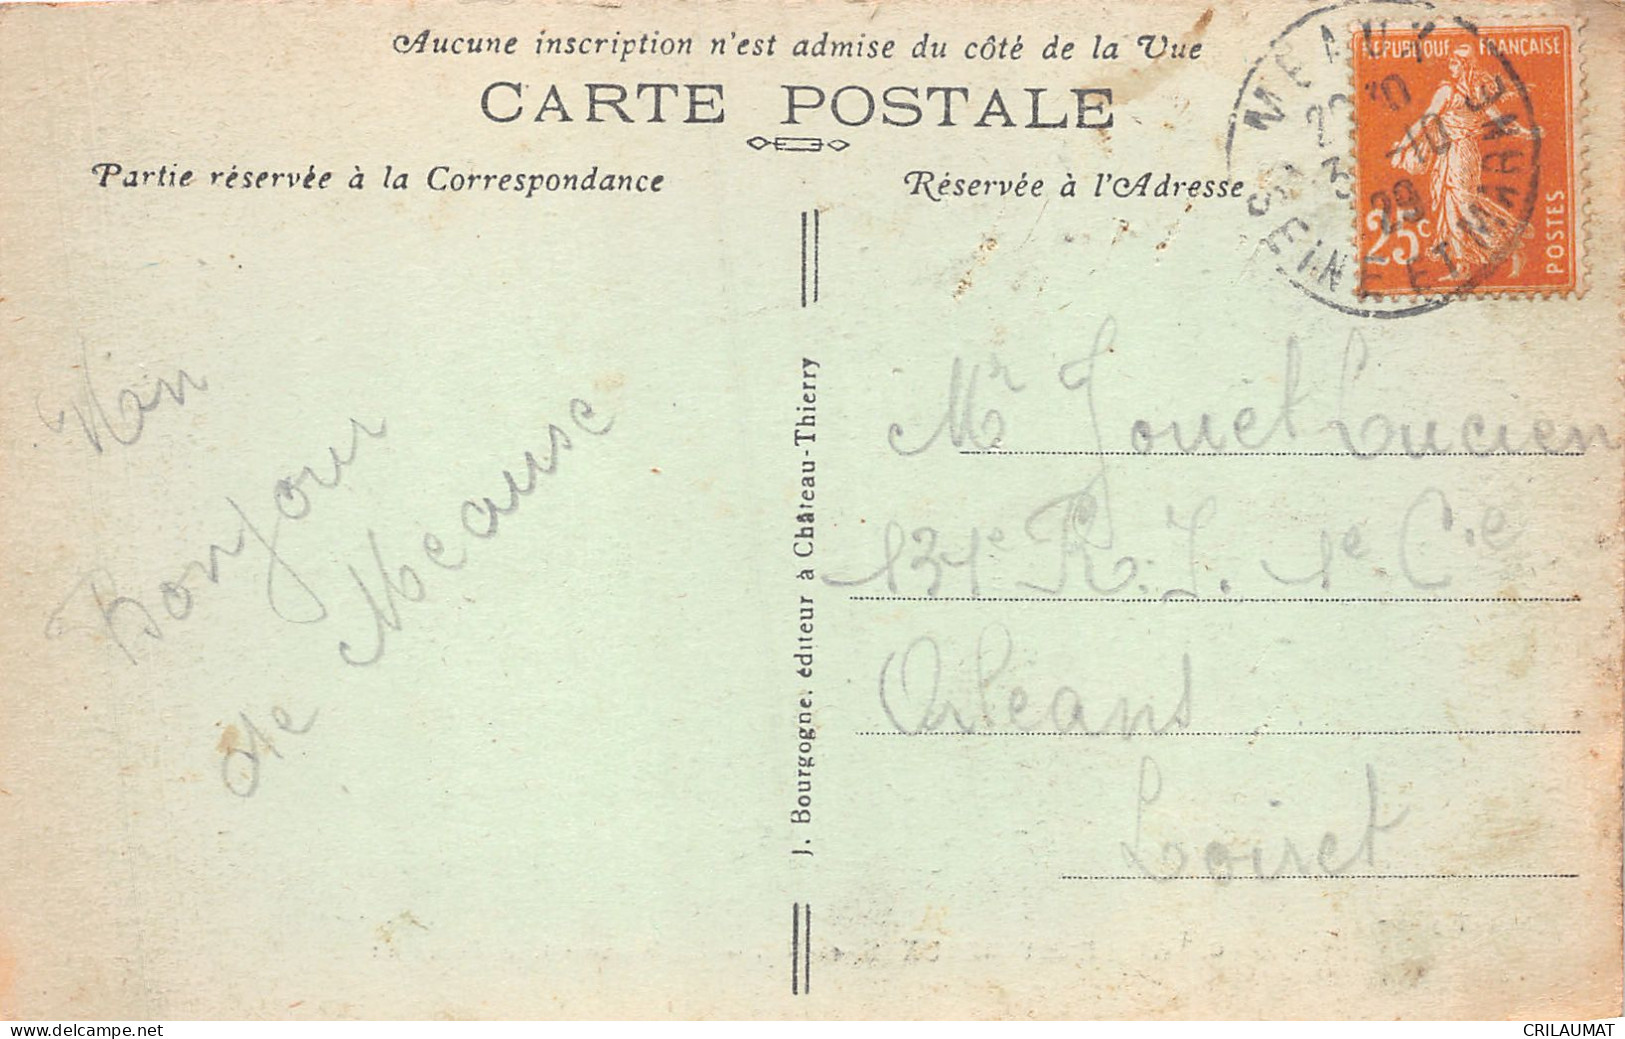 Aucune inscription n'est admise du côté de la Vue
CARTE POSTALE
Partie réservée à la Correspondance
Réservée à l'Adresse
REPUBLIQUE FRANÇAISE
25c
POSTES
MEAUX
SEINE ET MARNE
-10
29
Bonjour
de Meause
J. Bourgogne, éditeur à Château-Thierry
Mr Jouet Lucien
131e R.I. 1e Cie
Orléans
Loiret
www.delcampe.net
CRILAUMAT